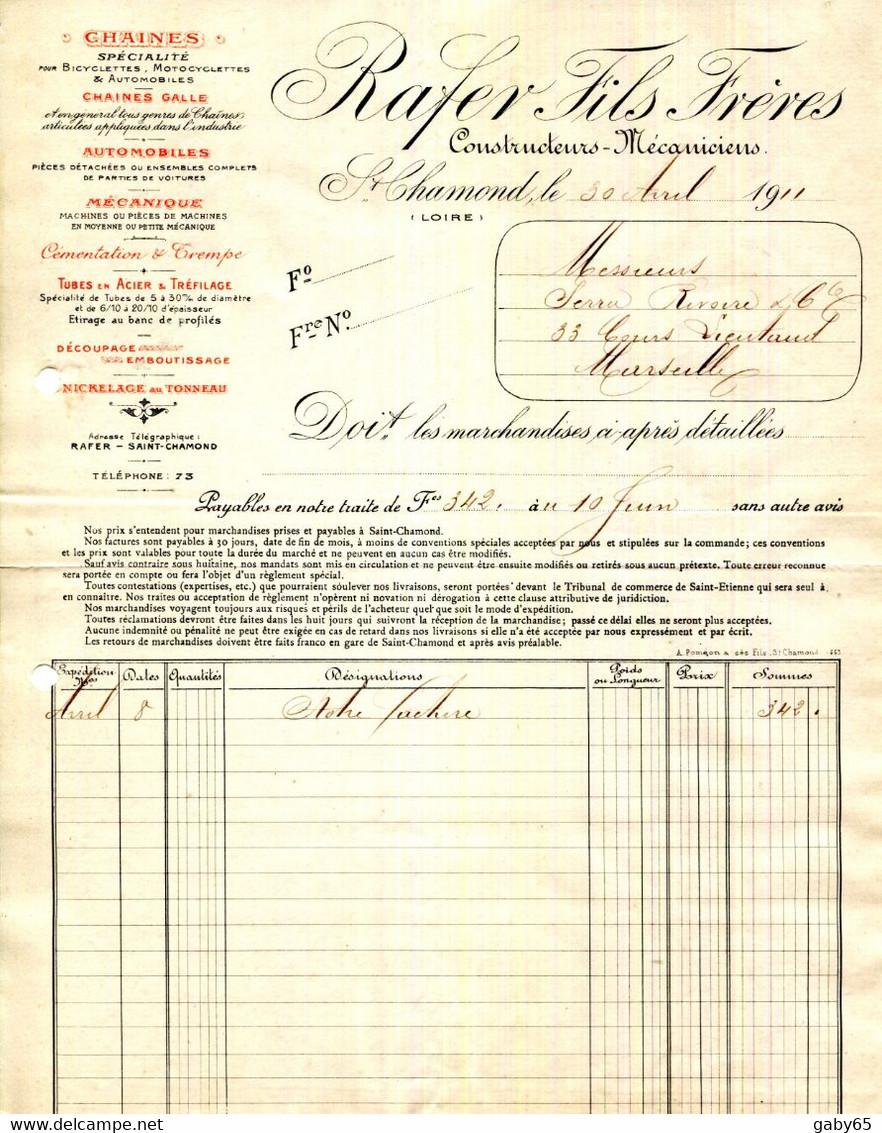 CHAINES
SPÉCIALITÉ
POUR BICYCLETTES, MOTOCYCLETTES
& AUTOMOBILES
CHAINES GALLE
et en général tous genres de Chaînes
articulées appliquées dans l'industrie
AUTOMOBILES
PIÈCES DÉTACHÉES OU ENSEMBLES COMPLETS
DE PARTIES DE VOITURES
MÉCANIQUE
MACHINES OU PIÈCES DE MACHINES
EN MOYENNE OU PETITE MÉCANIQUE
Cémentation & Trempe
TUBES EN ACIER & TRÉFILAGE
Spécialité de Tubes de 5 à 30m/m de diamètre
et de 6/10 à 20/10 d'épaisseur
Etirage au banc de profilés
DÉCOUPAGE
EMBOUTISSAGE
NICKELAGE AU TONNEAU
Adresse Télégraphique :
RAFER - SAINT-CHAMOND
TÉLÉPHONE : 73
Rafer Fils Frères
Constructeurs-Mécaniciens.
St Chamond, le 30 Avril 1911
( LOIRE )
Fo
Fre No
Messieurs
Serra Rivoire & Cie
33 Cours Lieutaud
Marseille
Doit les marchandises ci-après détaillées
Payables en notre traite de Fcs 342. à u 10 Juin sans autre avis
Nos prix s'entendent pour marchandises prises et payables à Saint-Chamond.
Nos factures sont payables à 30 jours, date de fin de mois, à moins de conventions spéciales acceptées par nous et stipulées sur la commande; ces conventions
et les prix sont valables pour toute la durée du marché et ne peuvent en aucun cas être modifiés.
Sauf avis contraire sous huitaine, nos mandats sont mis en circulation et ne peuvent être ensuite modifiés ou retirés sous aucun prétexte. Toute erreur reconnue
sera portée en compte ou fera l'objet d'un règlement spécial.
Toutes contestations (expertises, etc.) que pourraient soulever nos livraisons, seront portées devant le Tribunal de commerce de Saint-Etienne qui sera seul à
en connaître. Nos traites ou acceptation de règlement n'opèrent ni novation ni dérogation à cette clause attributive de juridiction.
Nos marchandises voyagent toujours aux risques et périls de l'acheteur quel que soit le mode d'expédition.
Toutes réclamations devront être faites dans les huit jours qui suivront la réception de la marchandise; passé ce délai elles ne seront plus acceptées.
Aucune indemnité ou pénalité ne peut être exigée en cas de retard dans nos livraisons si elle n'a été acceptée par nous expressément et par écrit.
Les retours de marchandises doivent être faits franco en gare de Saint-Chamond et après avis préalable.
A. Pomeon & ses Fils. St Chamond
Expédition Nos Dates Quantités Désignations Poids ou Longueur Prix Sommes
Avril 8 Notre facture 342.
gaby65